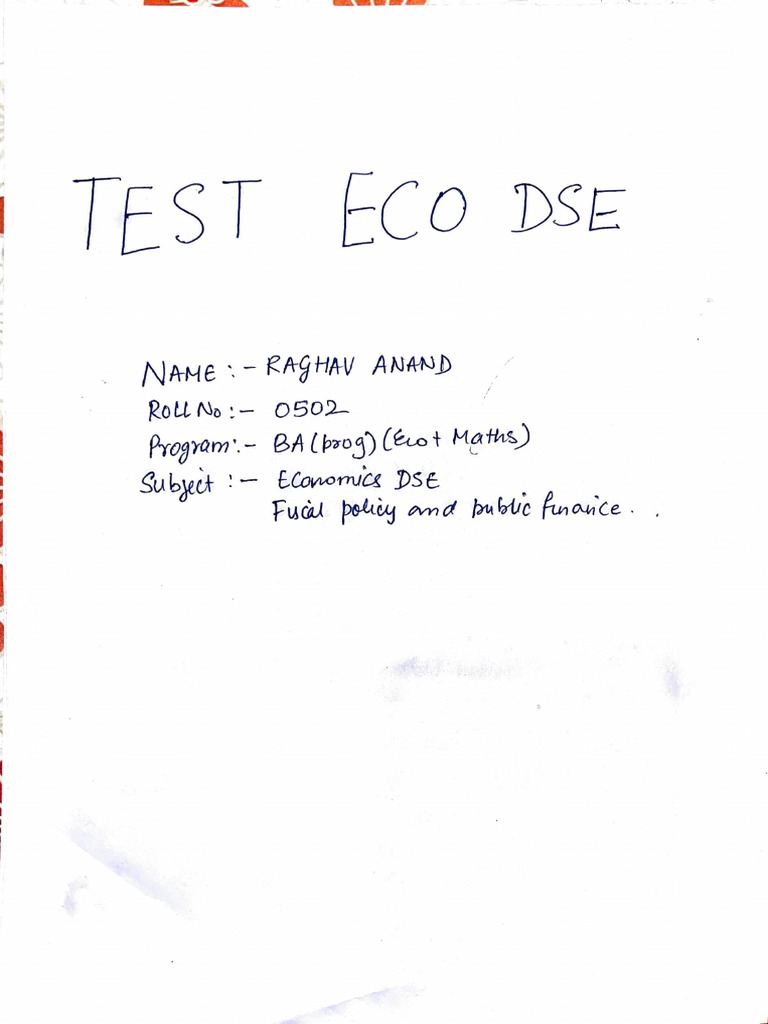 TEST ECO DSE
NAME :- RAGHAV ANAND
Roll No :- 0502
Program :- BA (prog) (Eco + Maths)
Subject :- Economics DSE
Fiscal policy and public finance.